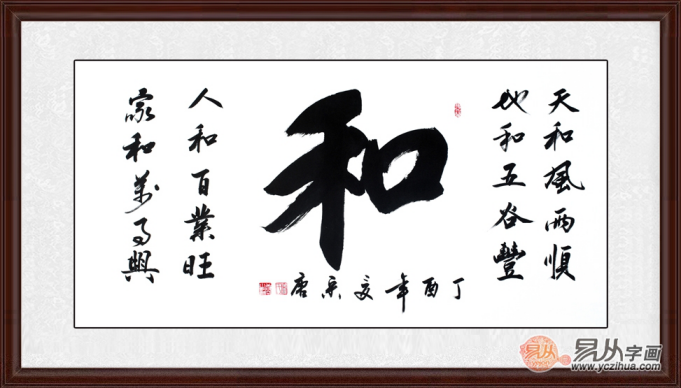 天和風雨順
地和五谷豐
和
人和百業旺
家和萬事興
丁酉年
易从字画
www.yczihua.com